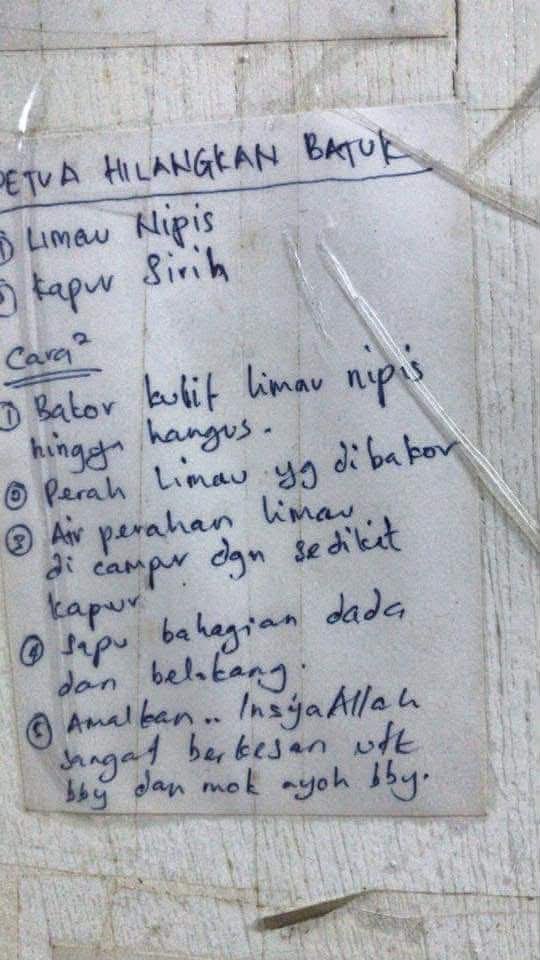 PETUA HILANGKAN BATUK
① Limau Nipis
② Kapur Sirih
Cara²
① Bakor kulit limau nipis
hingga hangus.
② Perah limau yg dibakor
③ Air perahan limau
di campur dgn sedikit
kapur
④ Sapu bahagian dada
dan belakang.
⑤ Amalkan.. InsyaAllah
sangat berkesan utk
bby dan mok ayoh bby.